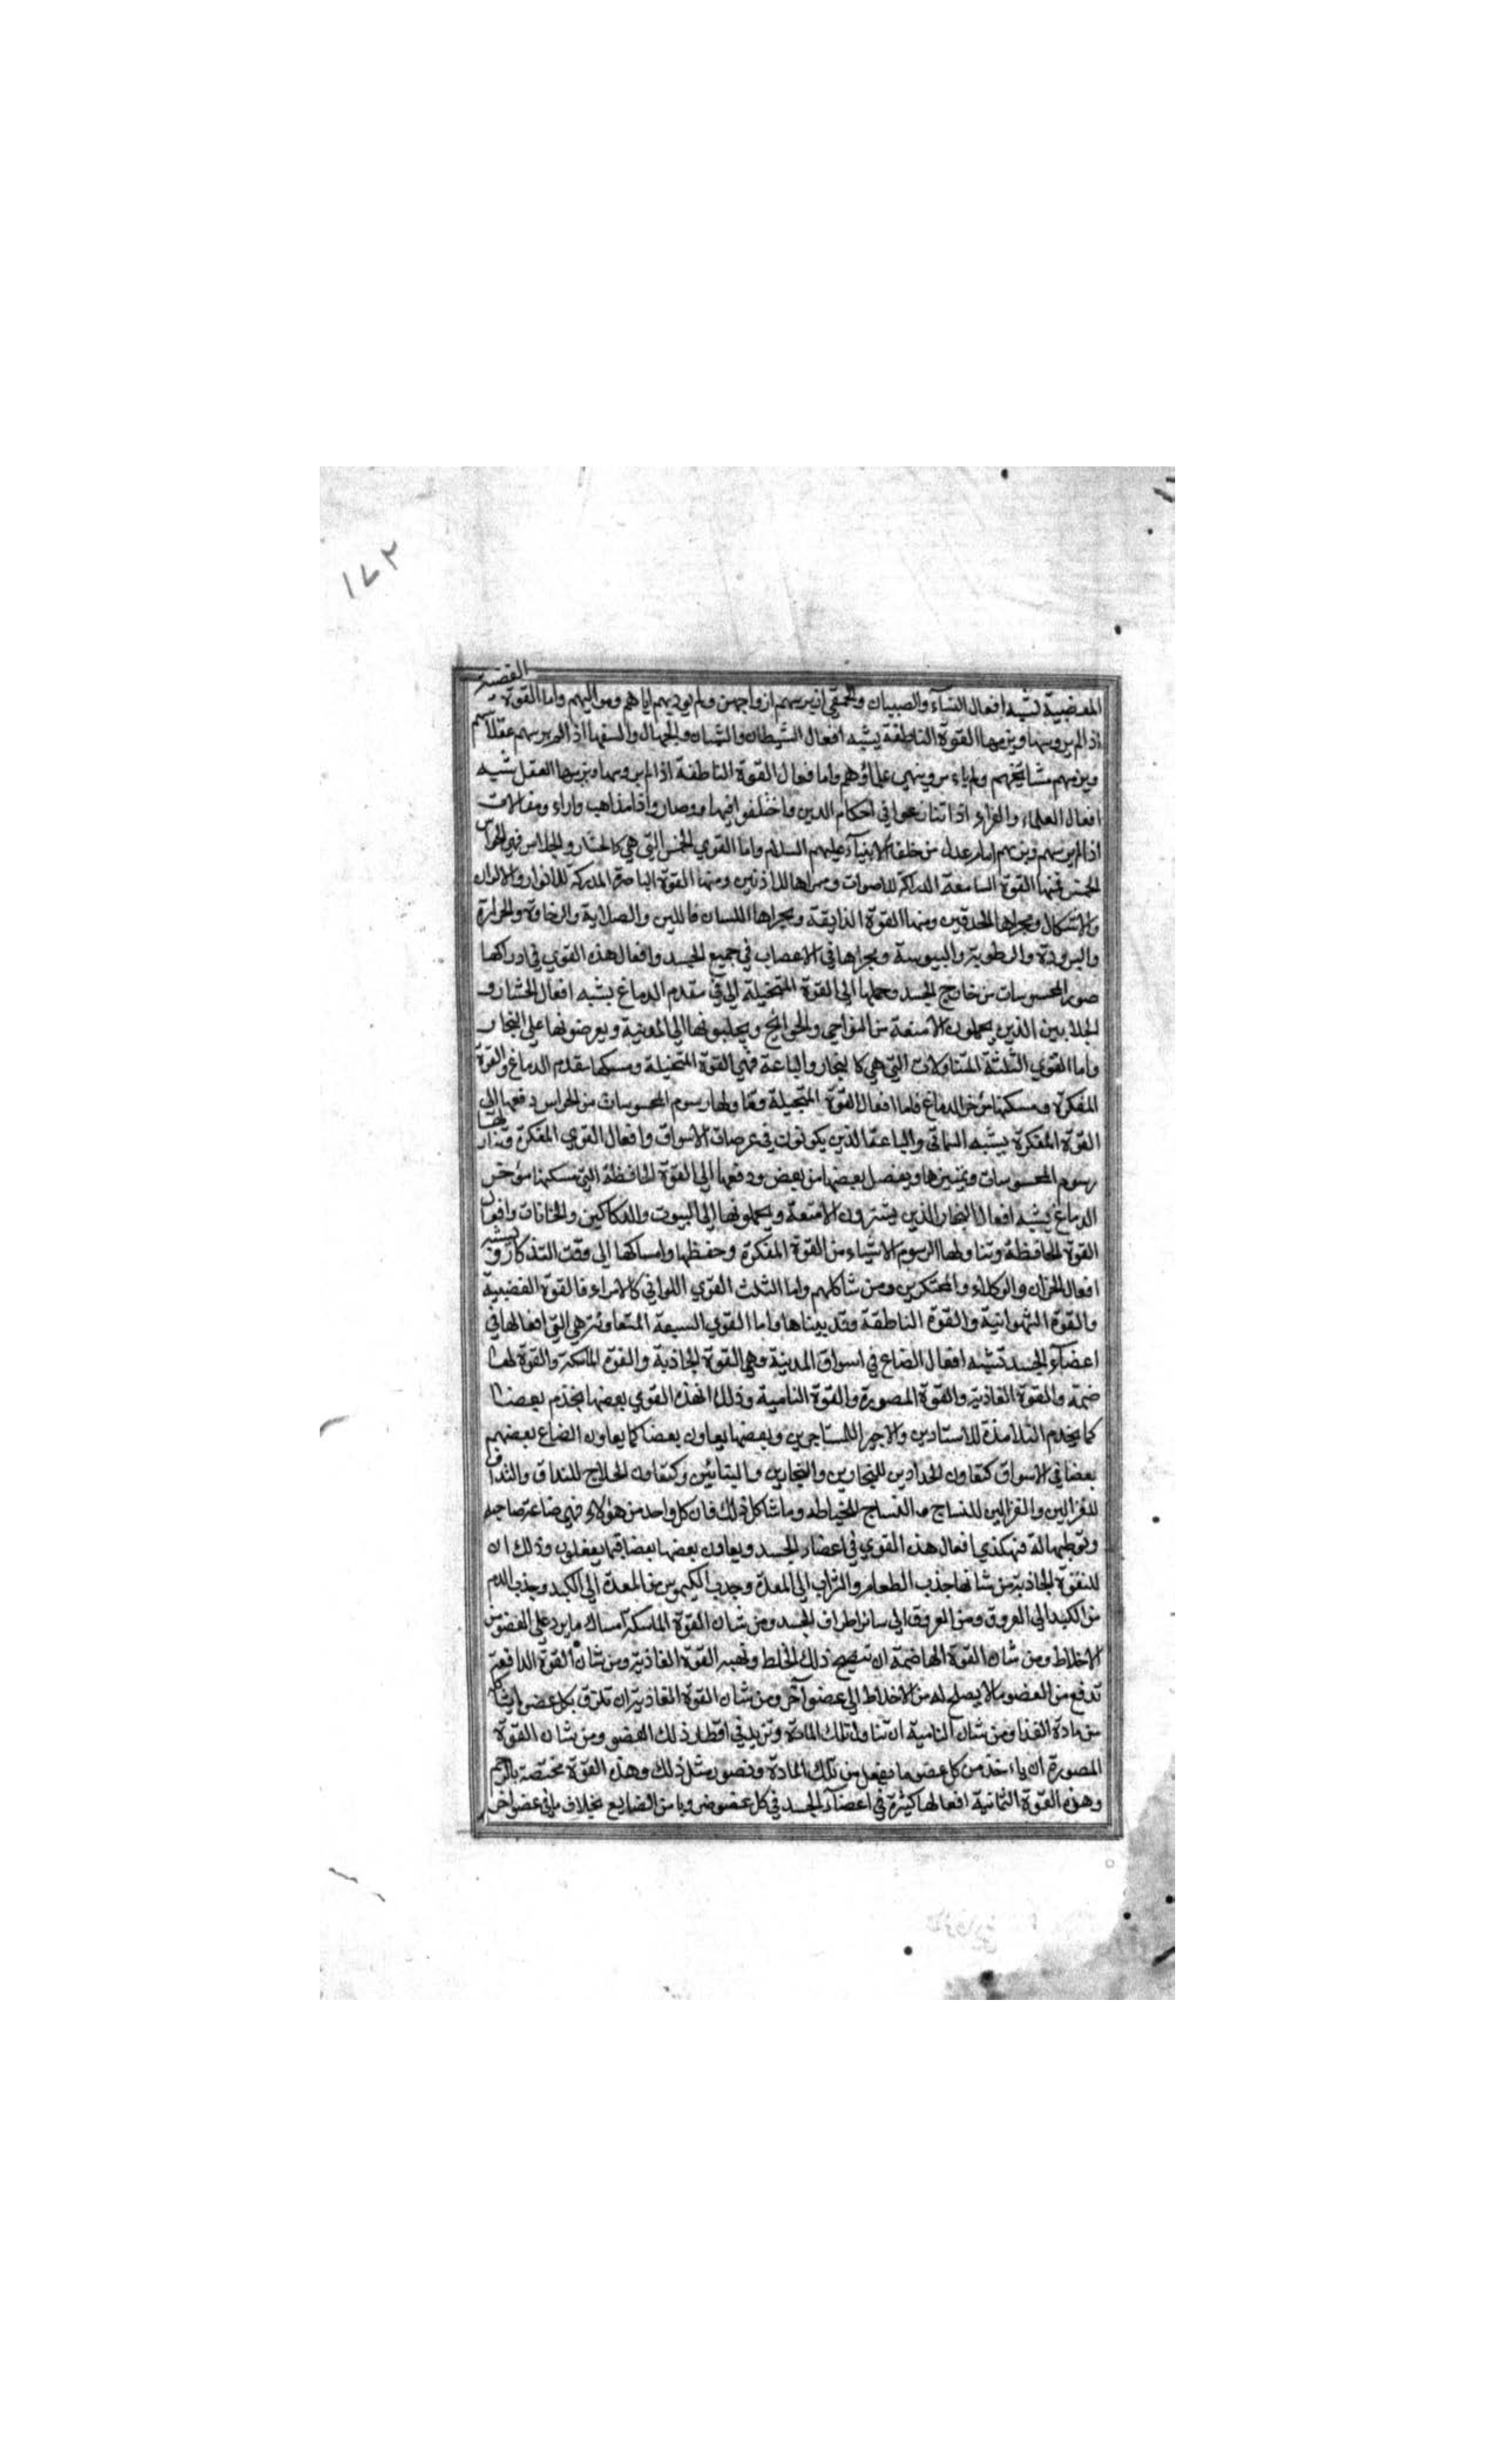 ١٧٢
الغضبية
المغضبية تشبه افعال النساء والصبيان والحمقي ان يرسهم ازواجهن ولم يوديهم اباهم ومواليهم واما القوة
اذ الم يروسها ويزمها القوة الناطقة يشبه افعال الشيطان والشبان والجهال والسفها اذ الم يرسهم عقلاؤهم
ويزمهم مشايخهم ولم ياءمر وينهي علماؤهم واما فعال القوة الناطقة اذا لم يروسها ويزينها العقل يشبه
افعال العلماء والقراء اذا تنازعوا في احكام الدين واختلفوا فيها وصاروا ذا مذاهب واراء ومقالات
اذا لم يرسهم ويزمهم امام عدل من خلفاء الانبياء عليهم السلام واما القوي الخمس التي هي كالحشار والجلاس فهي الحواس
الخمس فمنها القوة السامعة الدراكة للاصوات ومجراها للاذنين ومنها القوة الباصرة المدركة للانوار والالوان
والاشكال ومجراها الحدقتين ومنها القوة الذايقة ومجراها اللسان فاللين والصلابة والرخاوة والحرارة
والبرودة والرطوبة واليبوسة ومجراها في الاعصاب في جميع الجسد وافعال هذه القوي في ادراكها
صور المحسوسات من خارج الجسد وحملها الي القوة المتخيلة التي في مقدم الدماغ يشبه افعال الحشار و
الجلابين الذين يحملون الامتعة من النواحي والحوايج ويجلبونها الي المدينة ويعرضونها علي التجار
واما القوي الثلثة المتناولات التي هي كالتجار والباعة فهي القوة المتخيلة ومسكنها مقدم الدماغ والقوة
المفكرة ومسكنها مؤخر الدماغ فاما افعال القوة المتخيلة وتناولها رسوم المحسوسات من الحواس ودفعها الي
القوة المفكرة يشبه والباعة الذين يكونون في عرصات الاسواق وافعال القوي المفكرة وتناولها
رسوم المحسوسات وتميزها وبفصل بعضها من بعض ودفعها الي القوة الحافظة التي مسكنها مؤخر
الدماغ يشبه افعال التجار الذين يشترون الامتعة ويحملونها الي البيوت والدكاكين والخانات وافعال
القوة الحافظة وتناولها الرسوم الاشياء من القوة المفكرة وحفظها وامساكها الي وقت التذكار وتشبه
افعال الخزان والوكلاء والمحتكرين ومن شاكلهم واما الثلث القوي اللواتي كالامراء فالقوة الغضبية
والقوة الشهوانية والقوة الناطقة وقد بيناها واما القوي السبعة المتعاونة هي التي افعالها في
اعضاء الجسد تشبه افعال الصناع في اسواق المدينة وهي القوة الجاذبة والقوة الماسكة والقوة لها
ضمة والقوة الغاذية والقوة المصورة والقوة النامية وذلك ان هذه القوي بعضها يخدم بعضا
كما يخدم التلامذة للاستادين والاجر اللمستاجرين وبعضها يعاون بعضا كما يعاون الصناع بعضهم
بعضا في الاسواق كتعاون الحدادين للنجارين والنجارين والبنائين وكتعاون الحلاج للنداف والنداف
للغزالين والغزالين للنساج والنساج للخياط وما شاكل ذلك فان كل واحد من هؤلاء فهي صناعة صاحبه
وتوطيها له فهكذي افعال هذه القوي في اعضاء الجسد ويعاون بعضها بعضا فيما يفعلون وذلك ان
للقوة الجاذبة من شانها جذب الطعام والشراب الي المعدة وجذب الكيموس من المعدة الي الكبد وجذب الدم
من الكبد الي العروق ومن العروق الي سائر اطراف الجسد ومن شان القوة الماسكة امساك ما يرد علي العضو من
الاخلاط ومن شان القوة الهاضمة ان تنضج ذلك الخلط وتهيه القوة الغاذية ومن شان القوة الدافعة
تدفع من العضو مالا يصلح له من الاخلاط الي عضو آخر ومن شان القوة الغاذية ان تلزق بكل عضو ايشاكله
من مادة الغذا ومن شان النامية ان تناول تلك المادة وتزيد في اقطار ذلك العضو ومن شان القوة
المصورة ان ياءخذ من كل عضو ما يفعل من تلك المادة وتصور مثل ذلك وهذه القوة مختصة بالرحم
وهذه القوة الثمانية افعالها كثيرة في اعضاء الجسد في كل عضو ضروبا من الصنايع بخلاف ما في عضو اخر